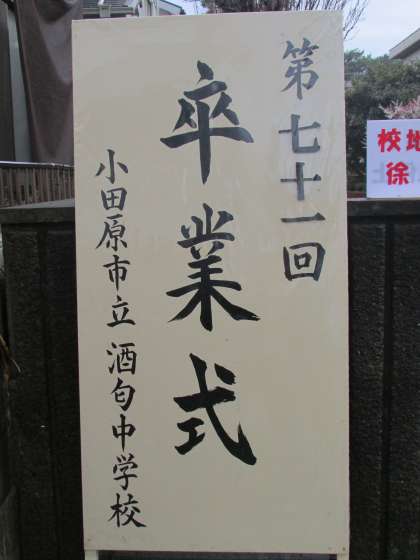 第七十一回
卒業式
小田原市立酒匂中学校
校地
徐